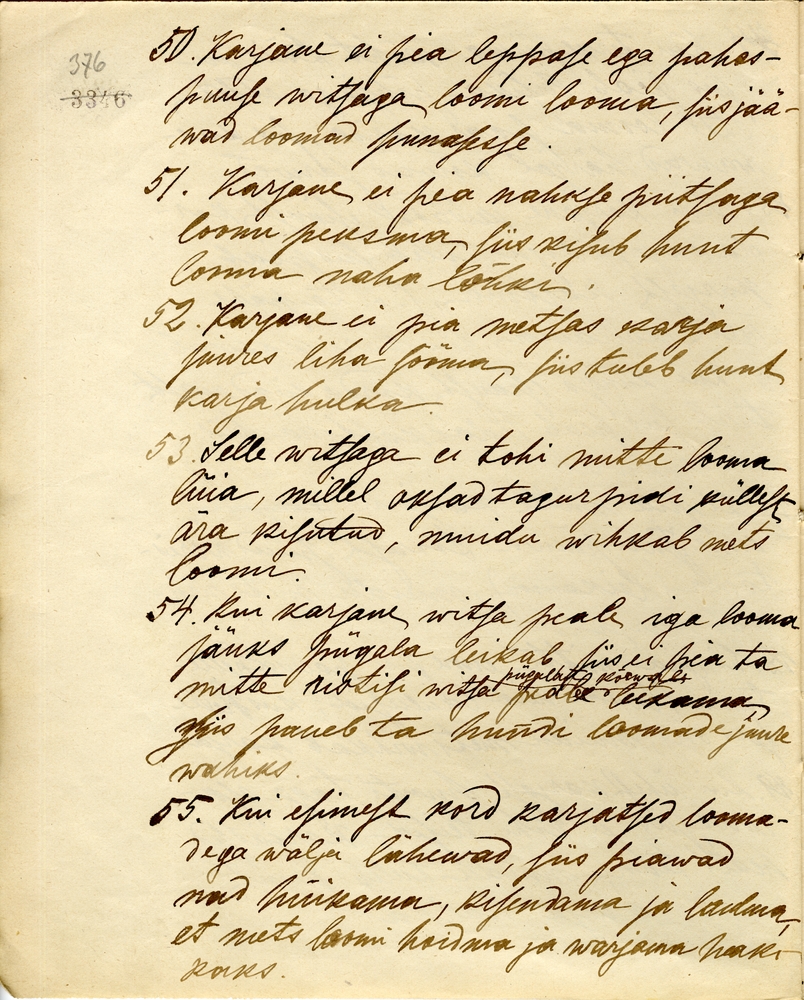 376
3346
50. Karjane ei pea leppase ega pahas-
puuse witsaga loomi looma, siis jää-
wad loomad punasesse.
51. Karjane ei pea nahkse piitsaga
loomi peksma, siis kisub hunt
looma naha lõhki.
52. Karjane ei pia metsas karja
juures liha sööma, siis tuleb hunt
karja hulka.
53. Selle witsaga ei tohi mitte looma
lüia, millel oksad tagurpidi küllest
ära kisutud, muidu wihkab mets
loomi.
54. Kui karjane witsa peale iga looma
jäuks pügala leikab, siis ei pea ta
mitte ristisi witsa pügalats kõrwale leikama,
siis paneb ta hundi loomade juure
wahiks.
55. Kui esimest kord karjatsed looma-
dega wälja lähewad, siis piawad
nad hüikama, kisendama ja laulma,
et mets loomi hoidma ja warjama haki-
kaks.